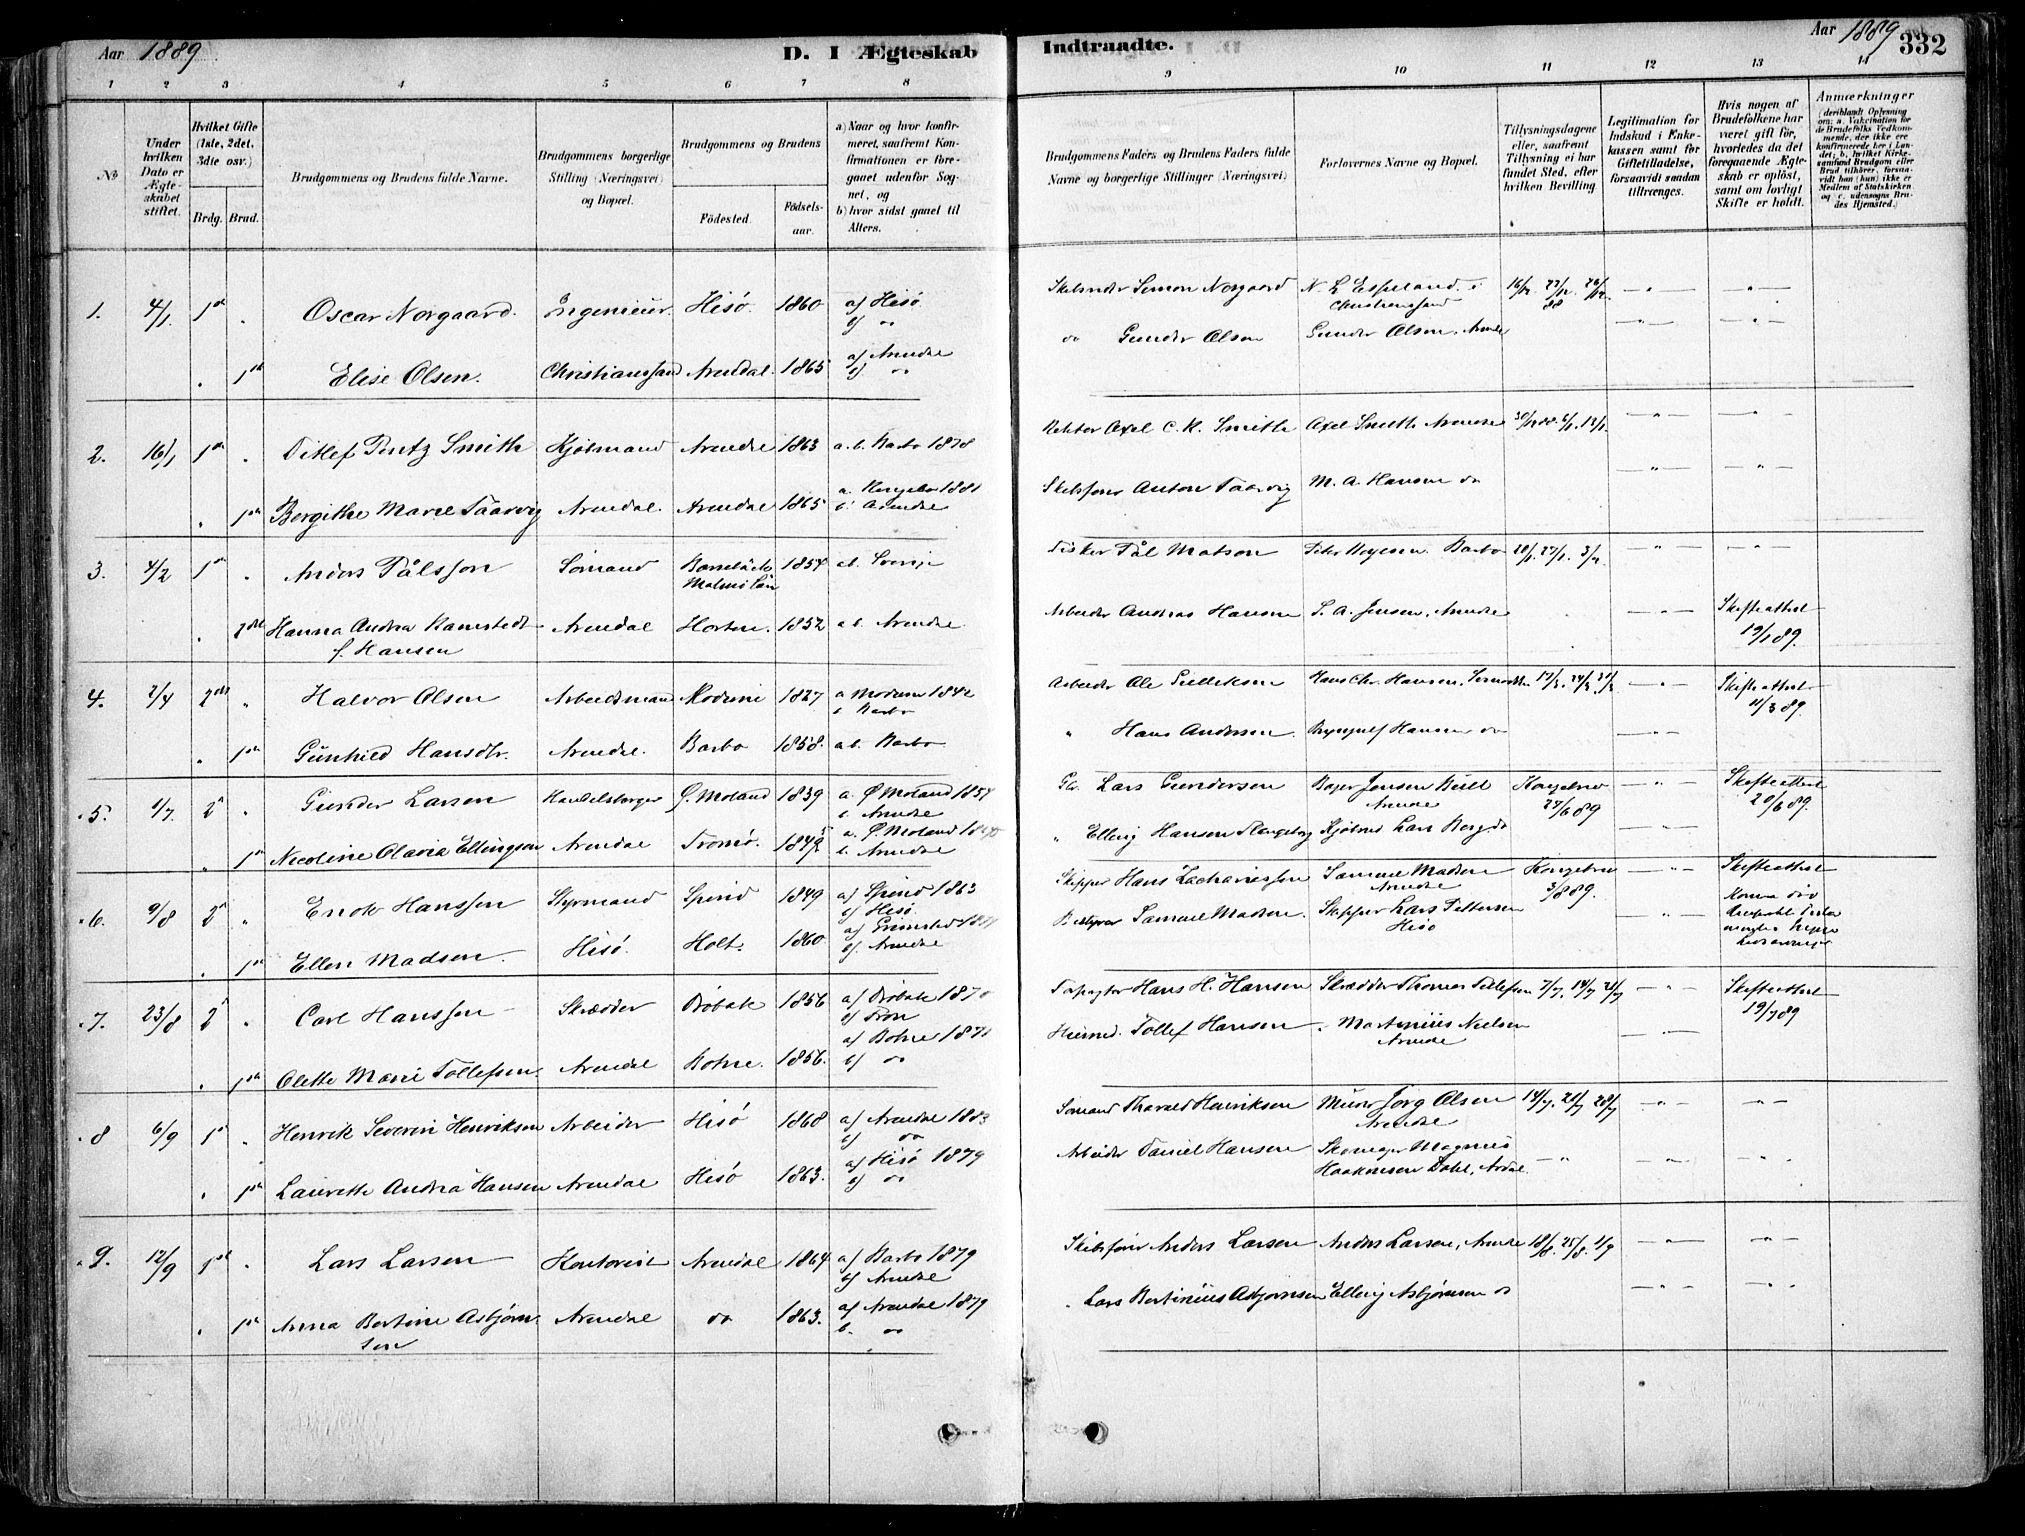 Aar 1889.
D. I Ægteskab Indtraadte.
Aar 1889
332
1 2 3 4 5 6 7 8 9 10 11 12 13 14
No
Under hvilken Dato er Ægteskabet stiftet.
Hvilket Gifte (1ste, 2det, 3die osv.)
Brdg. Brud.
Brudgommens og Brudens fulde Navne.
Brudgommens borgerlige Stilling (Næringsvei) og Bopæl.
Brudgommens og Brudens
Fødested.
Fødselsaar.
a) Naar og hvor konfirmeret, saafremt Konfirmationen er foregaaet udenfor Sognet, og
b) hvor sidst gaaet til Alters.
Brudgommens Faders og Brudens Faders fulde Navne og borgerlige Stillinger (Næringsvei)
Forlovernes Navne og Bopæl.
Tillysningsdagene eller, saafremt Tillysning ei har fundet Sted, efter hvilken Bevilling
Legitimation for Indskud i Enkekassen samt for Giftetilladelse, forsaavidt saadan tiltrænges.
Hvis nogen af Brudefolkene har været gift før, hvorledes da det foregaaende Ægteskab er opløst, samt om lovligt Skifte er holdt.
Anmærkninger (deriblandt Oplysning om: a. Vakcination for de Brudefolks Vedkommende, der ikke ere konfirmerede her i Landet; b. hvilket Kirkesamfund Brudgom eller Brud tilhører, forsaavidt han (hun) ikke er Medlem af Statskirken og c. udensogns Brudes Hjemsted.)
1. 4/1. 1ste " Oscar Norgaard. Ingeniør. Hisø. 1860 a) Hisø b) do Simon Norgaard N. L. Espeland i Christianssand 16/12. 23/12. 26/12. 88
" 1ste Elise Olsen. Christianssand Arendal. 1865 a) Arendal b) do do Gunder Olsen Gunder Olsen, Arendal
2. 16/1 1ste " Ditlef Pentz Smith Kjøbmand Arendal 1863 a.b. Barbo 1878 Rektor Axel C. K. Smith Axel Smith Arendal 30/12 88. 6/1. 13/1.
" 1ste Bergithe Marie Taarvig Arendal. Arendal 1865 a. 1881 b. Arendal Skibsfører Anton Taarvig M. A. Hansen do
3. 4/2 1ste " Anders Pålsson Sømand Malmö Län 1854 ab. Sverige Fisker Pål Matson Barbo 20/1. 27/1. 3/2.
" 2det Hanna Andrea Ramstedt f. Hansen Arendal Horten. 1852 a b. Arendal Arbeider Andreas Hansen S. A. Jensen, Arendal Skifteattest 19/1 89.
4. 2/4 2det " Halvor Olsen Arbeidsmand 1827 a 1842 b Barbo Arbeider Ole Hans Chr. Hansen, 17/3. 24/3. 31/3 Skifteattest 11/3 89.
" 1ste Gunhild Hansdtr. Arendal. Barbo 1858. a b. Barbo " Hans Andersen Brynjulf Hansen do
5. 1/7 2 " Gunder Larsen Handelsborger Ø. Moland 1839 a. Ø Moland 1854 b. Arendal Lars Gundersen Jensen Bull Arendal Kongebrev 27/6 89 Skifteattest 20/6 89.
" 1ste Nicoline Olavia Ellingsen Arendal Tromø. a. Ø. Moland b. Arendal " Elling Hansen Kjøbmd Lars Berg do
6. 9/8 2 " Enok Hanssen Styrmand Spind 1849 a) Spind 1863 b) Hisø Skipper Hans Zachariassen Samuel Madsen Arendal Kongebrev 3/8 89. Skifteattest
" 1ste Ellen Madsen. Hisø. Holt. 1860. a) Grimstad b). Arendal Bestyrer Samuel Madsen. Skipper Lars Pettersen Hisø
7. 23/8 2 " Carl Hanssen Skrædder Drøbak 1856 a) Drøbak 1870 b) Hans H. Hansen Skrædder Thomas Tellefsen 7/7. 14/7 21/7 Skifteattest 19/7 89
" 1ste Olette Marie Tollefsen. Arendal 1856. a) 1871 b) do Husmd. Tollef Hansen Martinius Nielsen Arendal
8 6/9 1ste " Henrik Severin Henriksen Arbeider Hisø 1868 a) Arendal 1883 b) do Sømand Tharald Henriksen Murer Jørg Olsen Arendal 14/7. 21/7 28/7
" 1ste Laurette Andrea Hansen Arendal Hisø 1863. a) Hisø 1879 b) do Arbeider Daniel Hansen Skomager Magnus Haakonsen Dahl, Ardal
9. 12/9 1ste " Lars Larsen Kontorist Arendal 1864 a) Barbo 1879 b) Arendal Skibsfører Anders Larsen Anders Larsen, Arendal 18/8. 25/8. 1/9
" 1ste Anna Bertine Asbjørnsen Arendal do 1863. a) Arendal 1879 b. do " Lars Bertinius Asbjørnsen Elling Asbjørnsen do